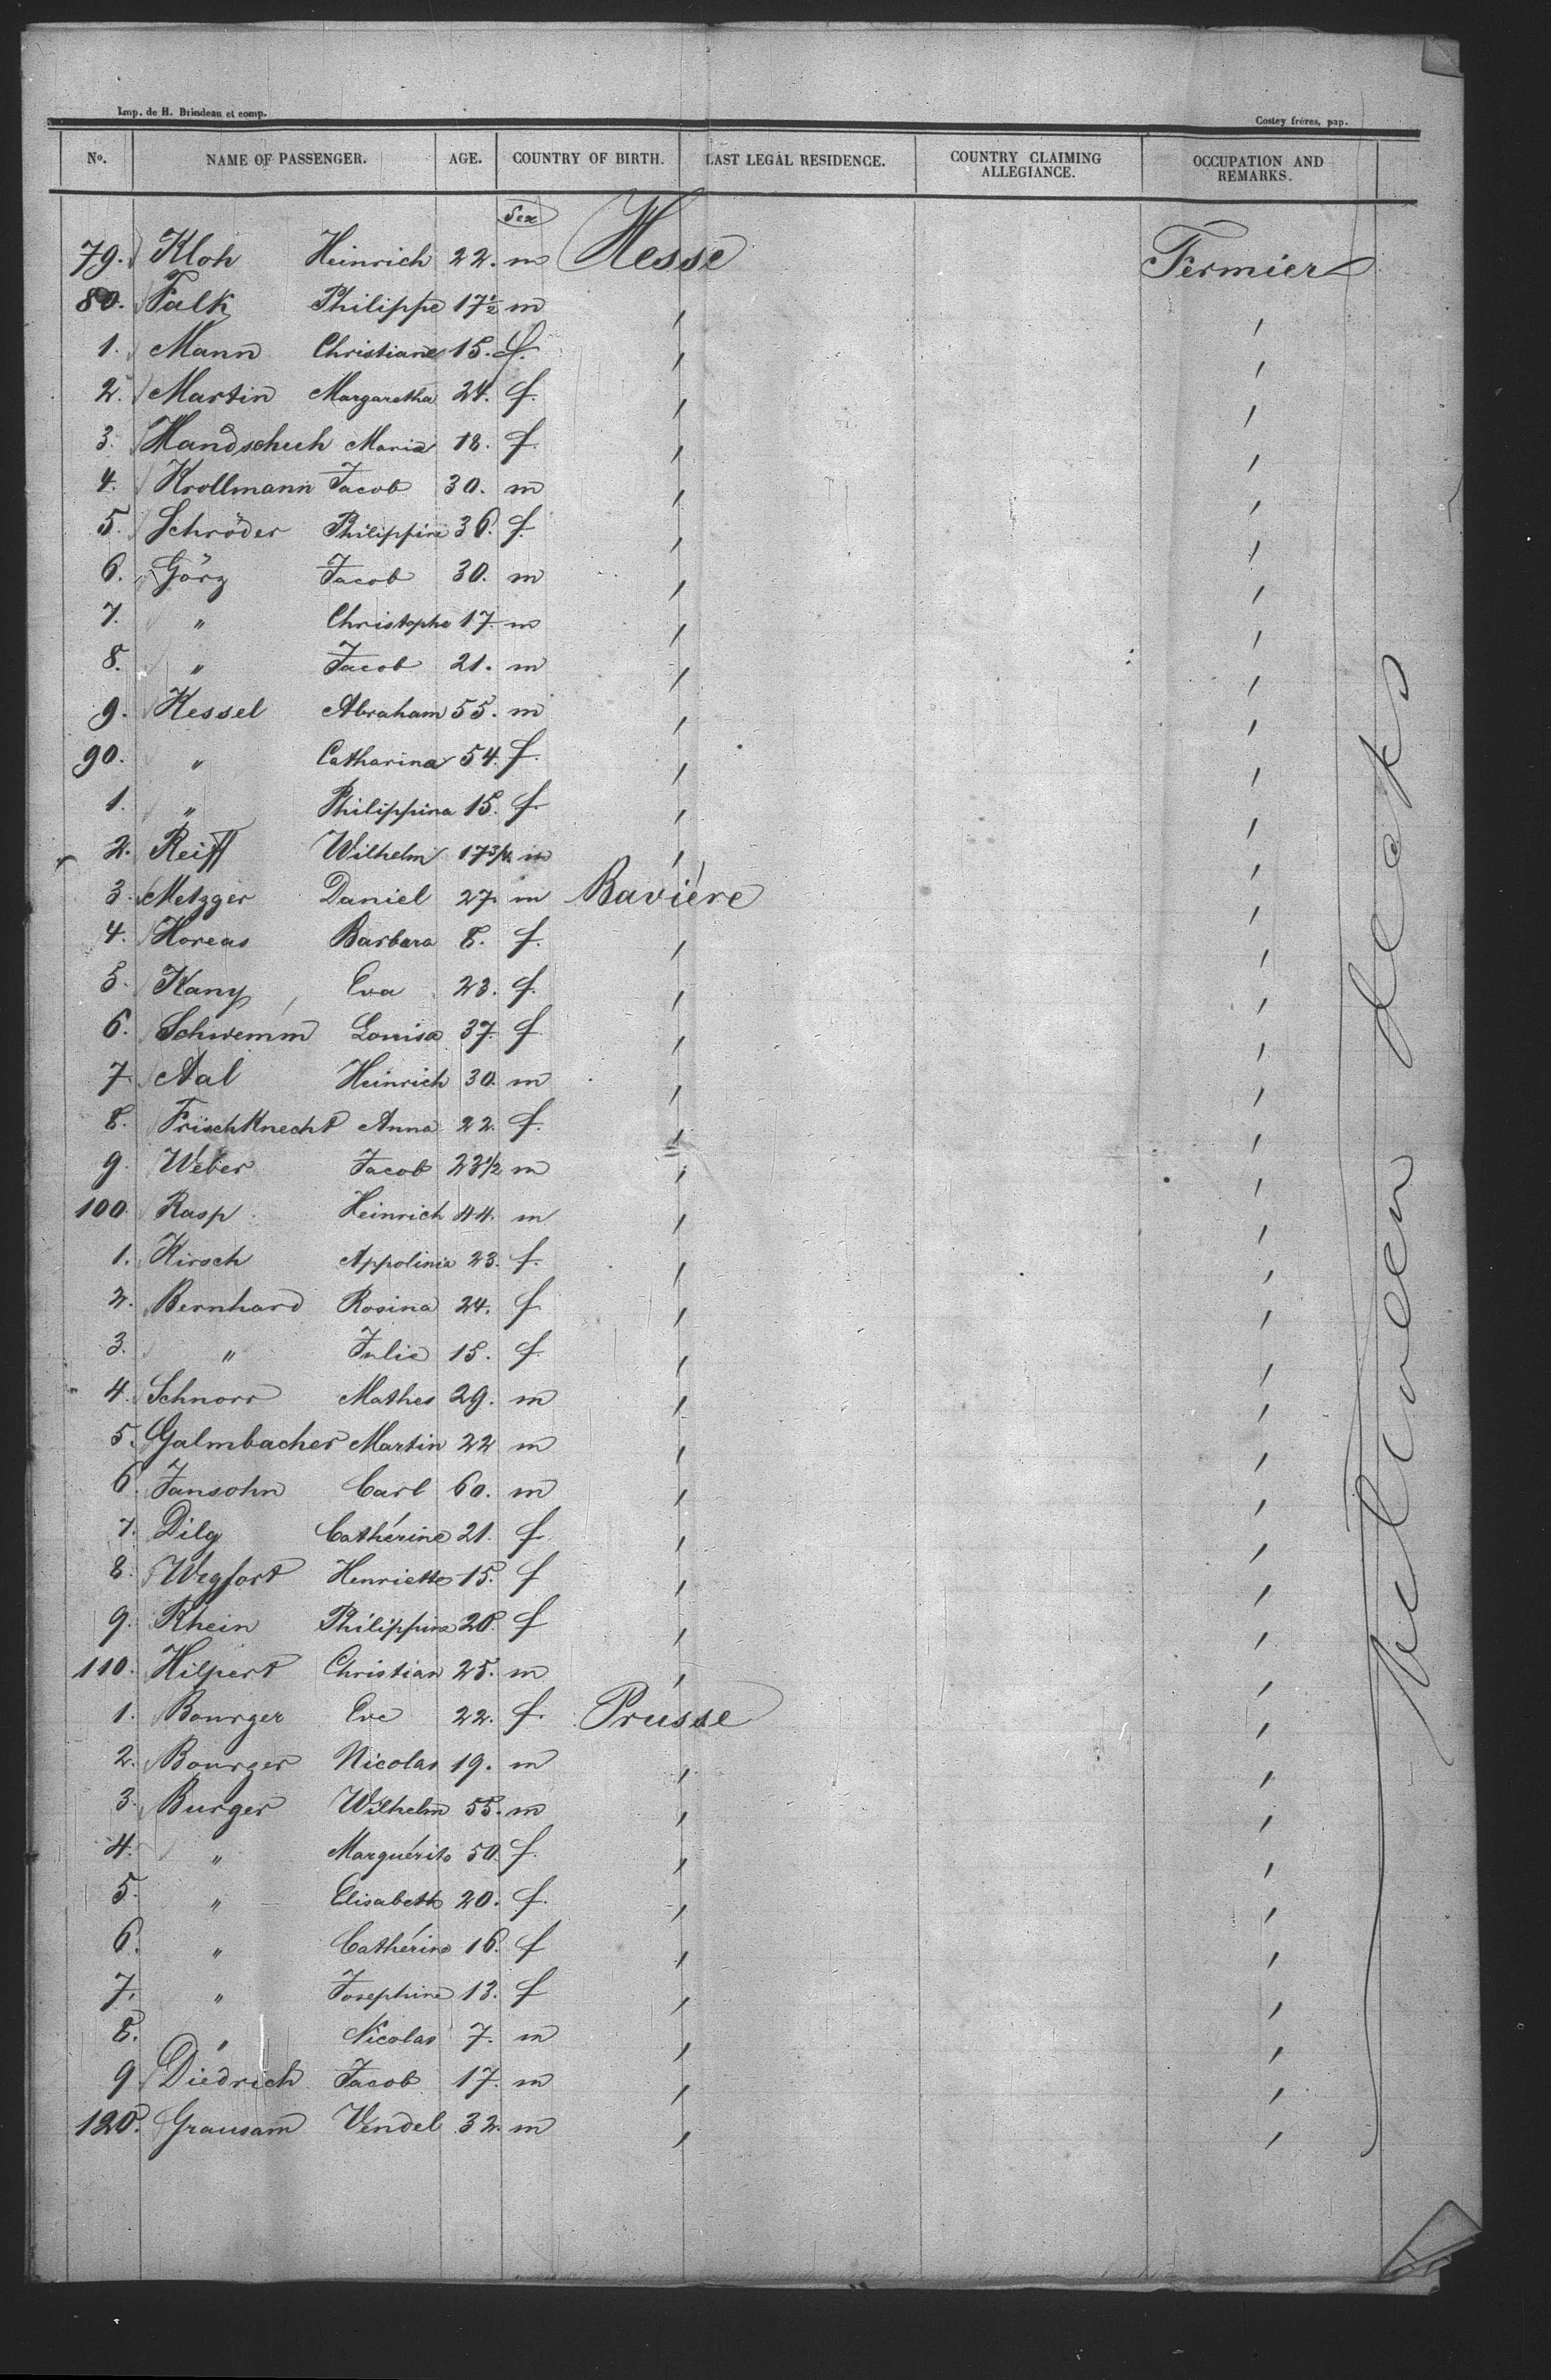 Imp. de H. Brindeau et comp.
Costey frères, pap.
No. NAME OF PASSENGER. AGE. COUNTRY OF BIRTH. LAST LEGAL RESIDENCE. COUNTRY CLAIMING ALLEGIANCE. OCCUPATION AND REMARKS.
Sex
79. Kloh Heinrich 22. m Hesse Fermier
80. Falk Philippe 17½ m
1. Mann Christiane 15. f.
2. Martin Margaretha 24. f.
3. Handschuh Maria 18. f.
4. Krollmann Jacob 30. m
5. Schröder Philippine 36. f.
6. Görz Jacob 30. m
7. " Christophe 17. m
8. " Jacob 21. m
9. Kessel Abraham 55. m
90. " Catharina 54. f.
1. " Philippina 15. f.
2. Reiff Wilhelm 17 3/4 m
3. Metzger Daniel 27. m Baviére
4. Horeas Barbara 8. f.
5. Kany Eva 23. f.
6. Schwemm Louisa 37. f
7 Aal Heinrich 30. m
8. Frischknecht Anna 22. f.
9. Weber Jacob 23½ m
100 Rasp Heinrich 44. m
1. Kirsch Appolinia 23. f.
2. Bernhard Rosina 24. f
3. " Julie 15. f.
4. Schnorr Mathes 29. m
5. Galmbacher Martin 22 m
6. Jansohn Carl 60. m
7. Dilg Cathérine 21. f
8. Wegfort Henriette 15. f
9. Rhein Philippina 20. f
110. Hilpert Christian 25. m
1. Bourger Eve 22. f. Prusse
2. Bourger Nicolas 19. m
3. Burger Wilhelm 55. m
4. " Marguérite 50. f.
5. " Elisabeth 20. f.
6. " Cathérine 16. f
7. " Josephine 13. f
8. " Nicolas 7. m
9 Diedrich Jacob 17. m
120. Grausam Vendel 32. m